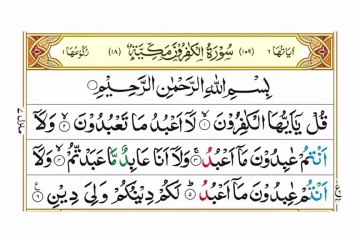 اٰيَاتُهَا ٦ (١٠٩) سُوْرَةُ الْكٰفِرُوْنَ مَكِّيَّةٌ (١٨) رُكُوْعُهَا ١
بِسْمِ اللّٰهِ الرَّحْمٰنِ الرَّحِيْمِ
قُلْ يٰۤاَيُّهَا الْكٰفِرُوْنَ ۙ١ لَاۤ اَعْبُدُ مَا تَعْبُدُوْنَ ۙ٢ وَلَاۤ
اَنْتُمْ عٰبِدُوْنَ مَاۤ اَعْبُدُ ۚ٣ وَلَاۤ اَنَا عَابِدٌ مَّا عَبَدْتُّمْ ۙ٤ وَلَاۤ
اَنْتُمْ عٰبِدُوْنَ مَاۤ اَعْبُدُ ؕ٥ لَكُمْ دِيْنُكُمْ وَلِيَ دِيْنِ ٦